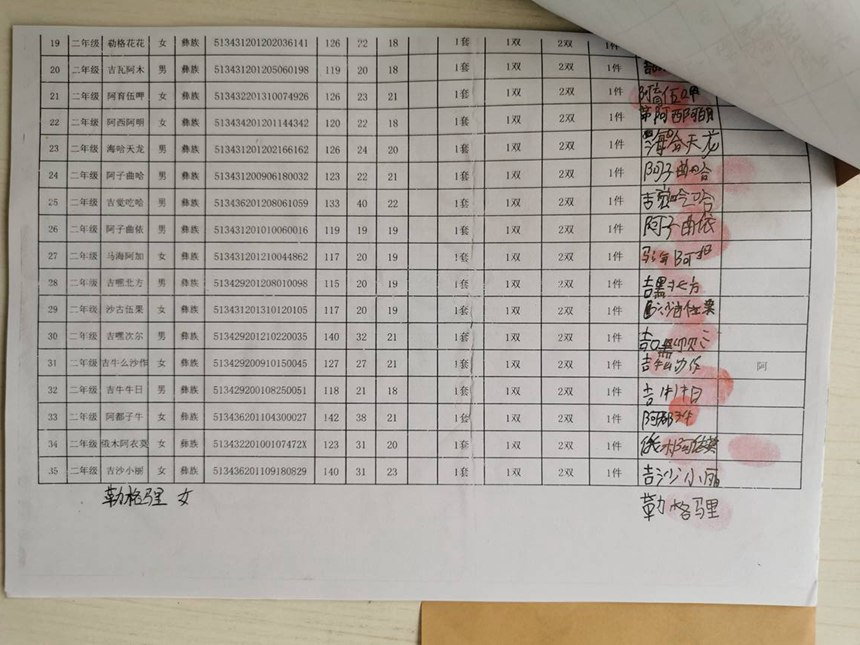 19 二年级 勒格花花 女 彝族 513431201202036141 126 22 18 1套 1双 2双 1件
20 二年级 吉瓦阿木 男 彝族 513431201205060198 119 20 18 1套 1双 2双 1件
21 二年级 阿育伍呷 女 彝族 513432201310074926 126 23 21 1套 1双 2双 1件 阿育伍呷
22 二年级 阿西阿明 女 彝族 513434201201144342 120 22 18 1套 1双 2双 1件 阿西阿明
23 二年级 海哈天龙 男 彝族 513431201202166162 126 24 20 1套 1双 2双 1件 海哈天龙
24 二年级 阿子曲哈 男 彝族 513431200906180032 123 22 21 1套 1双 2双 1件 阿子曲哈
25 二年级 吉觉吃哈 男 彝族 513436201208061059 133 40 22 1套 1双 2双 1件
26 二年级 阿子曲依 男 彝族 513431201010060016 119 19 19 1套 1双 2双 1件 阿子曲依
27 二年级 马海阿加 女 彝族 513431201210044862 117 20 19 1套 1双 2双 1件
28 二年级 吉嘿北方 男 彝族 513429201208010098 115 20 19 1套 1双 2双 1件 吉黑北方
29 二年级 沙古伍果 女 彝族 513431201310120105 117 20 19 1套 1双 2双 1件
30 二年级 吉嘿次尔 男 彝族 513429201210220035 140 32 21 1套 1双 2双 1件
31 二年级 吉牛么沙作 女 彝族 513429200910150045 127 27 21 1套 1双 2双 1件 阿
32 二年级 吉牛牛日 男 彝族 513429200108250051 118 21 18 1套 1双 2双 1件 吉牛牛日
33 二年级 阿都子牛 女 彝族 513436201104300027 142 38 21 1套 1双 2双 1件
34 二年级 俄木阿衣莫 女 彝族 51343220100107472X 123 31 20 1套 1双 2双 1件
35 二年级 吉沙小丽 女 彝族 513436201109180829 140 31 23 1套 1双 2双 1件 吉沙小丽
勒格马里 女 勒格马里